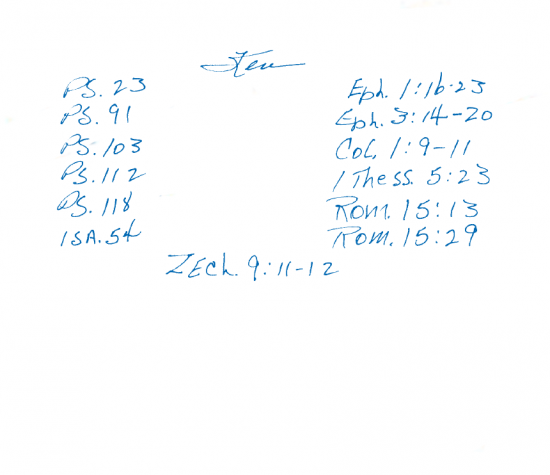 PS. 23
PS. 91
PS. 103
PS. 112
PS. 118
ISA. 54
Eph. 1:16-23
Eph. 3:14-20
Col. 1:9-11
1 Thess. 5:23
Rom. 15:13
Rom. 15:29
ZEch. 9:11-12